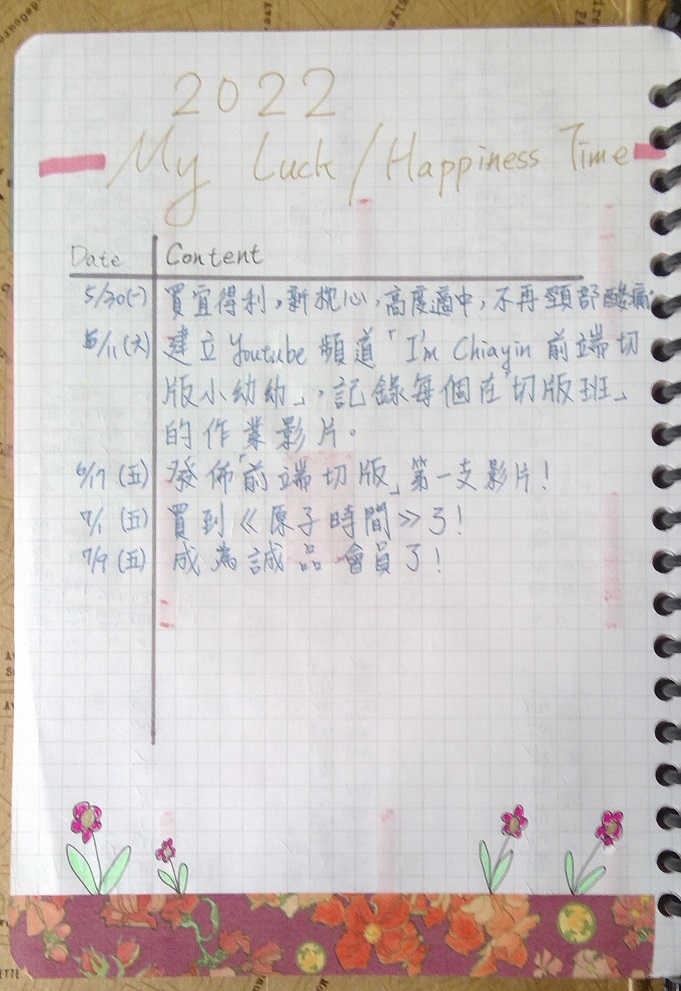 2022
My Luck / Happiness Time
Date Content
5/30(一) 買宜得利,新枕心,高度適中,不再頸部酸痛.
6/11(六) 建立 Youtube 頻道「I'm Chiayin 前端切
版小幼幼」,記錄每個在「切版班」
的作業影片。
6/17 (五) 發佈「前端切版」第一支影片!
7/1 (五) 買到《原子時間》了!
7/9 (五) 成為誠品會員了!